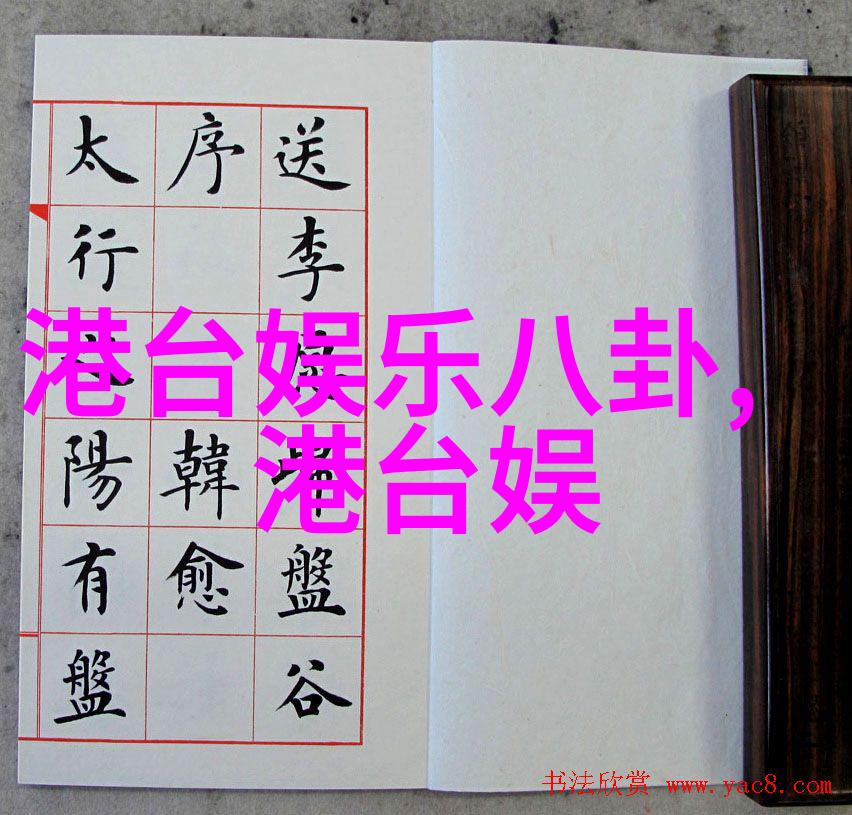 送李盤谷
序 韓愈
太行陽有盤
港台娱乐八卦,
港台娱
书法欣赏 www.yac8.com